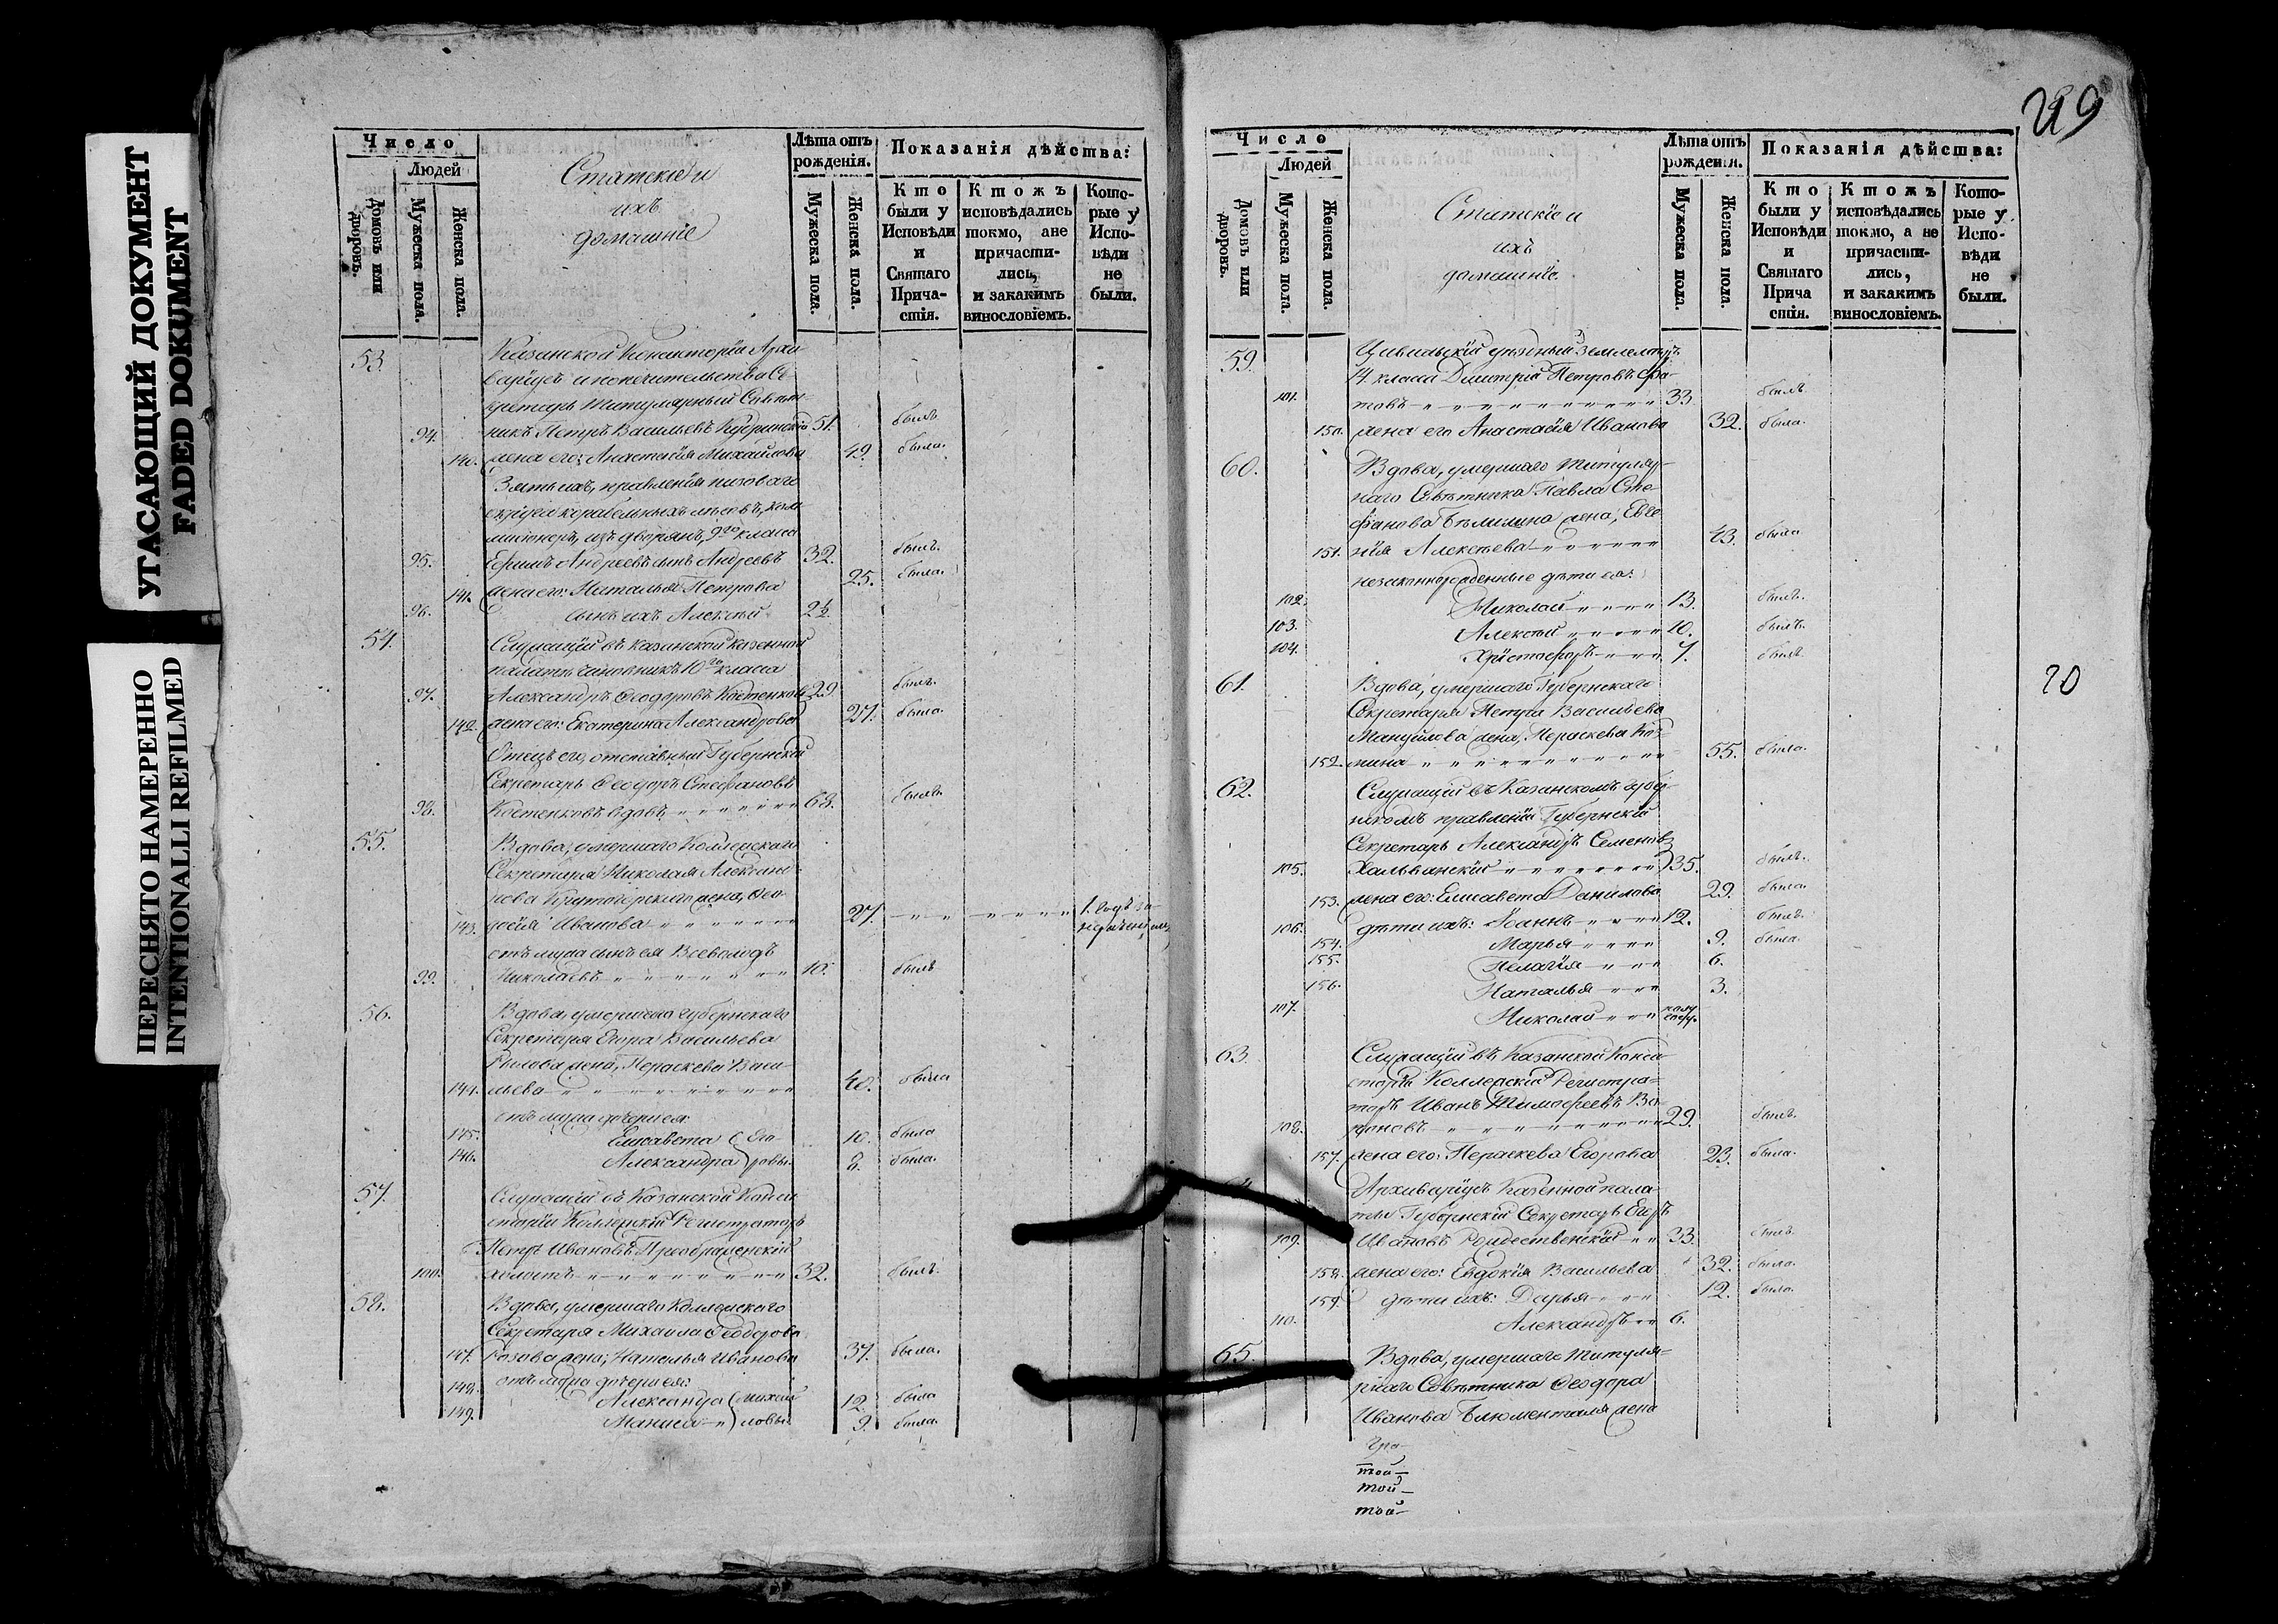 УГАСАЮЩИЙ ДОКУМЕНТ
FADED DOKUMENT
ПЕРЕСНЯТО НАМЕРЕННО
INTENTIONALLI REFILMED
Число
Людей
Домовъ или дворовъ.
Мужеска пола.
Женска пола.
Статскіе и
ихъ
домашніе
Лѣта отъ рожденія.
Мужеска пола.
Женска пола.
Показанія дѣйства:
Кто были у Исповѣди и Святаго Причастія.
Ктожъ исповѣдались токмо, а не причастились, и закакимъ винословіемъ.
Которые у Исповѣди не были.
53. Казанской Консисторіи Архи-
варіусъ и попечительства Се-
кретарь Титулярный Совѣт-
94. никъ Петръ Васильевъ 51. былъ
140. жена его: Анастасія Михайлова 49. была.
Зять ихъ, правленія низоваго
округа корабельныхъ лѣсовъ, ком
мисіонеръ, изъ дворянъ, 9го класса
95. Ефимъ Андреевъ сынъ Андреевъ 32. былъ.
141. жена его: Наталья Петрова 25. была.
96. сынъ ихъ Алексѣй 2½
54. Служащій въ казанской казенной
палатѣ чиновникъ 10го класса
97. Александръ Ѳеодоровъ Костенковъ 29 былъ.
142. жена его: Екатерина Александрова 27. была.
Отецъ его, отставный Губернскій
Секретарь Ѳеодоръ Стефановъ
98. Костенковъ вдовъ 68. былъ
55. Вдова, умершаго Коллежскаго
Секретаря Николая Алексан-
дрова жена, Ѳео-
143. досія Иванова 27.
отъ мужа сынъ ея Всеволодъ
99. Николаевъ 10. былъ
56. Вдова, умершаго губернскаго
Секретаря Егора Васильева
жена, Параскева Васи-
144. льева 40. была
отъ мужа дочери ея:
145. Елисавета Его- 10. была
146. Александра ровы. 8. была.
57. Служащій въ Казанской Конси
сторіи Коллежскій Регистраторъ
Петръ Ивановъ Преображенскій
100. холостъ 32. былъ.
58. Вдова, умершаго Коллежскаго
Секретаря Михаила Ѳеодорова
147. Розова жена, Наталья Иванова 37. была.
отъ мужа дочери ея:
148. Александра Михай 12. была
149. ловы 9. была.
249
Число
Людей
Домовъ или дворовъ.
Мужеска пола.
Женска пола.
Статскіе и
ихъ
домашніе
Лѣта отъ рожденія.
Мужеска пола.
Женска пола.
Показанія дѣйства:
Кто были у Исповѣди и Святаго Причастія.
Ктожъ исповѣдались токмо, а не причастились, и закакимъ винословіемъ.
Которые у Исповѣди не были.
59. Цивильскій уѣздный Землемѣръ
14 класса Дмитрій Петровъ
101. товъ 33. былъ.
150. жена его Анастасія Иванова 32. была.
60. Вдова, умершаго Титуляр-
наго Совѣтника Павла Сте-
фанова Бѣлилина жена, Евге-
151. нія Алексѣева 43. была
незаконнорожденные дѣти ея:
102. Николай 13. былъ.
103. Алексѣй 10. былъ.
104. Христофоръ 7. былъ
61. Вдова, умершаго Губернскаго
Секретаря Петра Васильева
Мануйлова жена, Параскева Коз-
152. мина 55. была.
62. Служащій въ Казанскомъ губер-
нскомъ правленіи Губернскій
Секретарь Александръ Семеновъ
105. Хальванскій 35. былъ.
153. жена его: Елисавета Данилова 29. была
106. дѣти ихъ: Іоаннъ 12. былъ.
154. Марья 9. была.
155. Пелагія 6.
156. Наталья 3.
107. Николай
63. Служащій въ Казанской Конси-
сторіи Коллежскій Регистра-
торъ Иванъ Тимофеевъ Во-
108. роновъ 29. былъ.
157. жена его: Параскева Егорова 23. была.
Архиваріусъ Казенной пала-
ты Губернскій Секретарь Егоръ
109. Ивановъ Рождественскій 33. былъ.
158. жена его: Евдокія Васильева 32. была.
159. дѣти ихъ: Дарья 12. была.
110. Александръ 6.
65. Вдова, умершаго Титуля-
рнаго Совѣтника Ѳеодора
Иванова Блюменталя жена
той
той
той
20